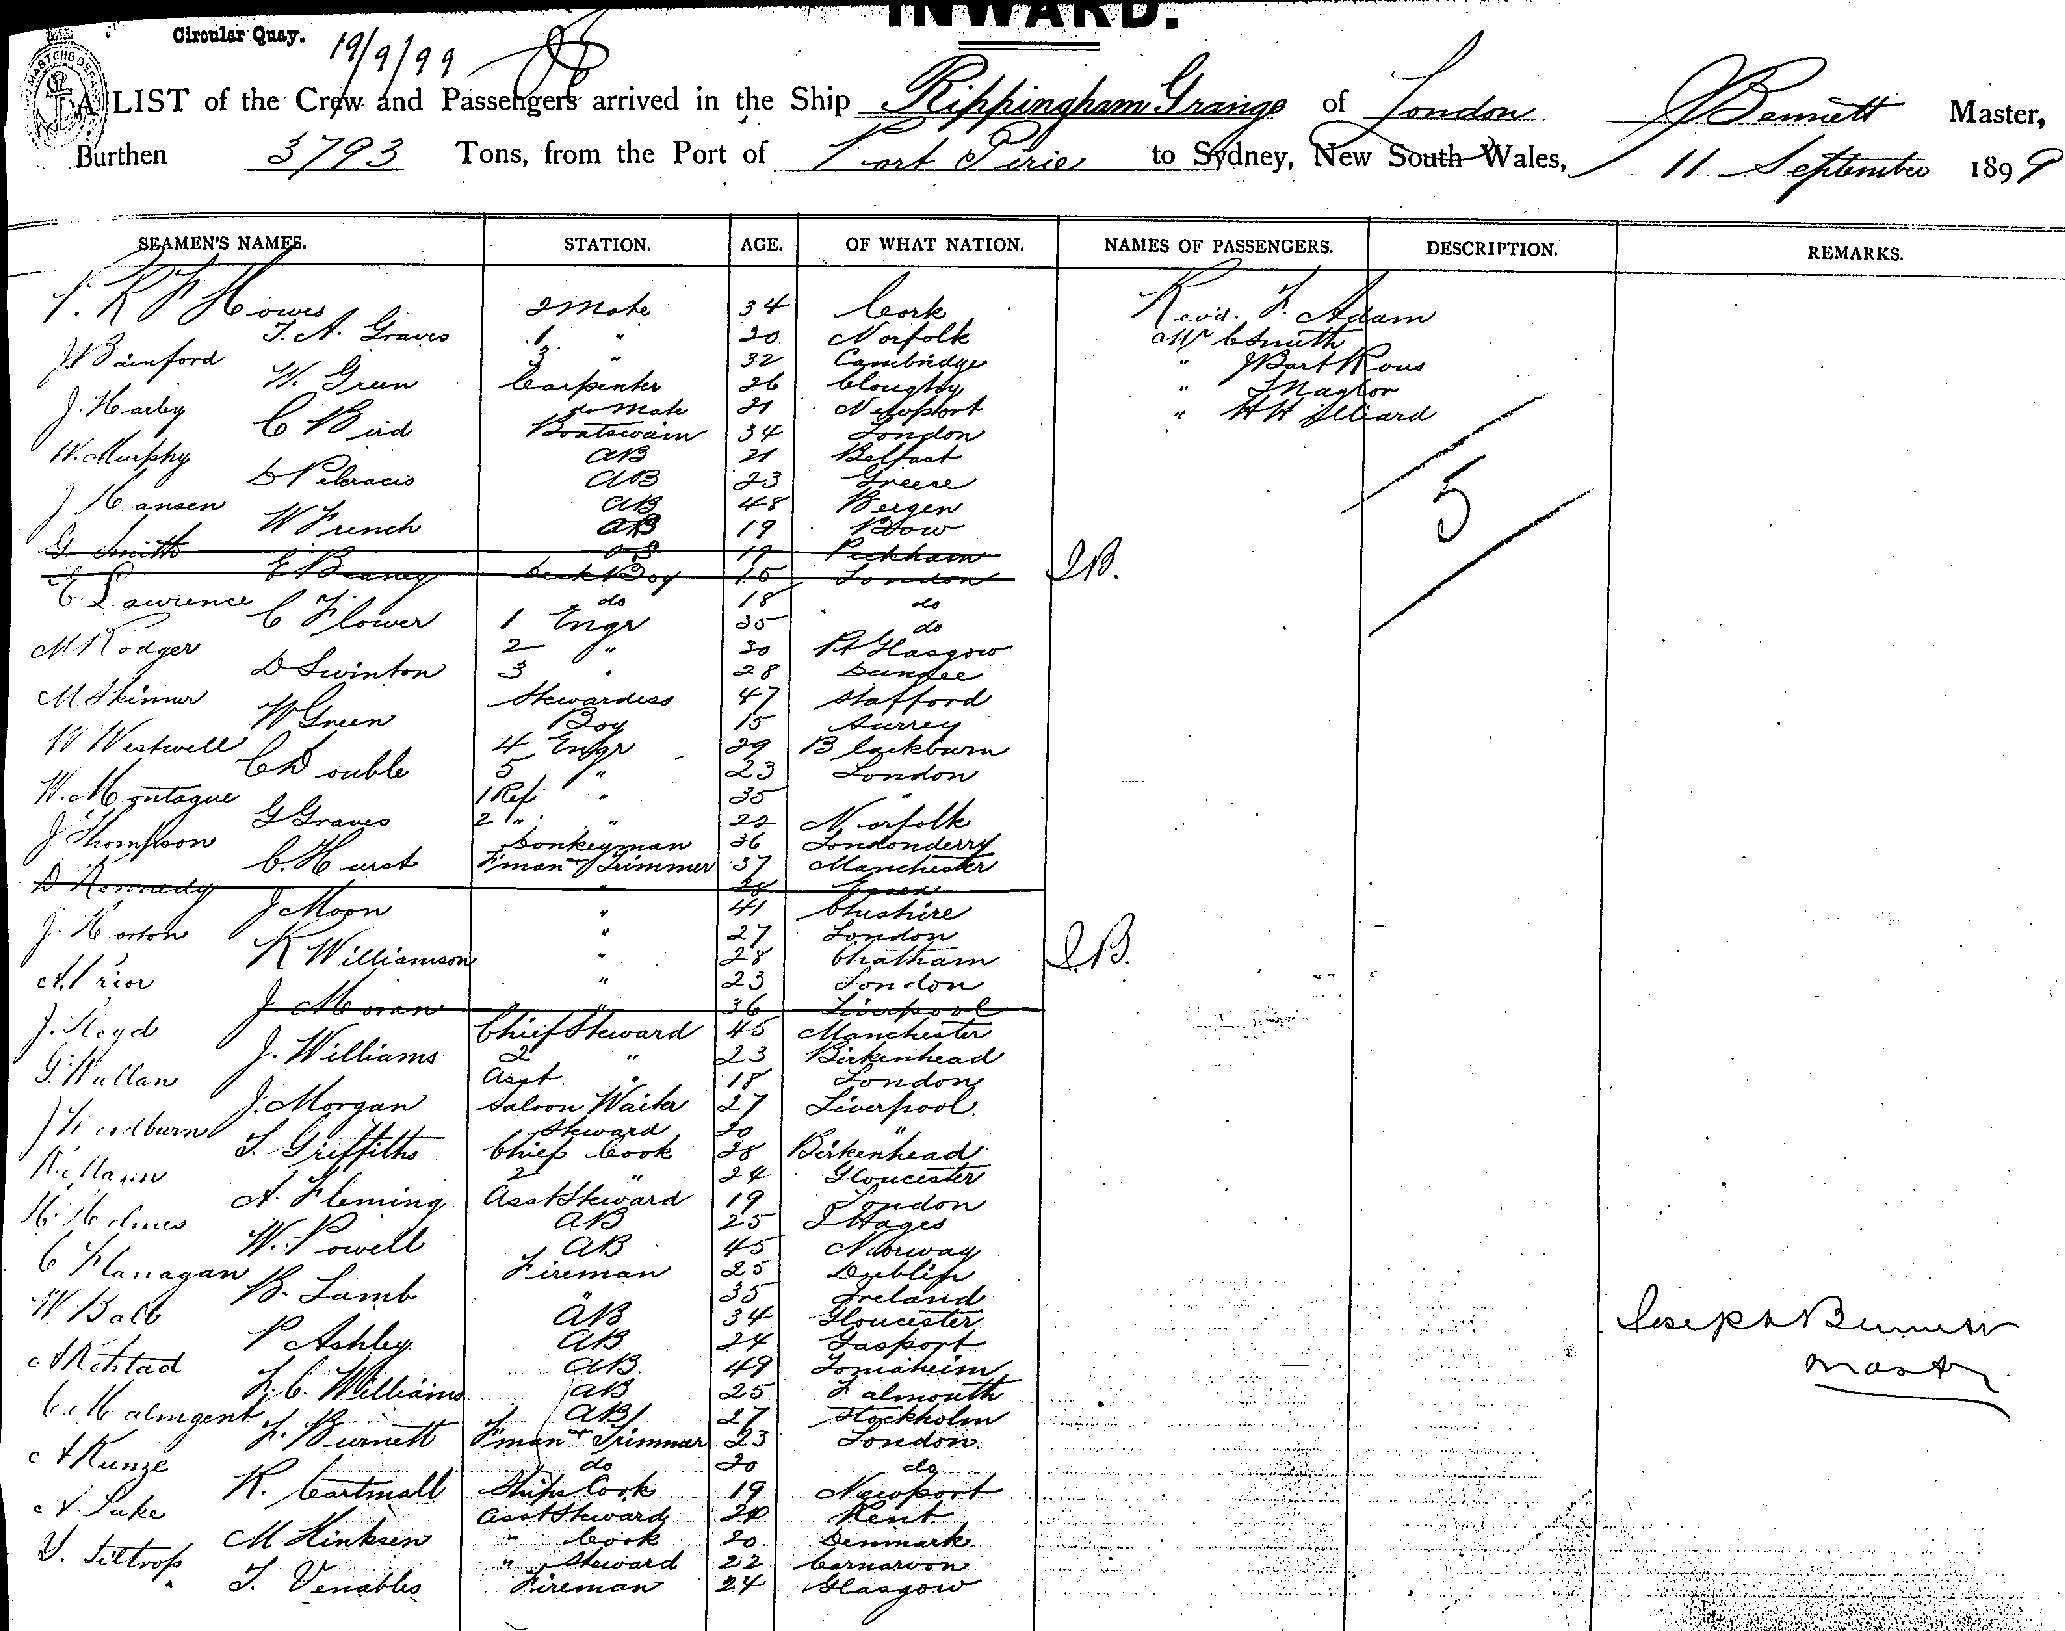 INWARD.
Circular Quay. 19/9/99
A LIST of the Crew and Passengers arrived in the Ship Rippingham Grange of London J Bennett Master,
Burthen 3793 Tons, from the Port of Port Pirie to Sydney, New South Wales, 11 September 1899
SEAMEN'S NAMES. STATION. AGE. OF WHAT NATION. NAMES OF PASSENGERS. DESCRIPTION. REMARKS.
Howes 2 Mate 34 Cork Revd. F. Adam
T. A. Graves 1 " 20 Norfolk Mr C Smith
J. Bainford 3 " 32 Cambridge " J Bart Rous
W. Green Carpenter 26 Cloughy "
J. Harby do Mate 21 Newport " H Hilliard
C Bird Boatswain 34 London
W. Murphy AB 21 Belfast
D AB 23 Greece
J Hansen AB 48 Bergen
W French AB 19 Bow
G Smith OS 19 Peckham
E Boy 15 London JB.
E Lawrence do 18 do
C Flower 1 Engr 35 do
M Rodger 2 " 30 Pt Glasgow
D Swinton 3 " 28 Dundee
M Skinner Stewardess 47 Stafford
W Green Boy 15 Surrey
W Westwell 4 Engr 29 Blackburn
C Double 5 " 23 London
W. Montague 1 Ref " 35 "
G Graves 2 " " 22 Norfolk
J Thompson Donkeyman 36 Londonderry
C. Hurst F'man & Trimmer 37 Manchester
D Kennedy " 28
J Moon " 41 Cheshire
J. Horton " 27 London
R Williamson " 28 Chatham JB.
A Prior " 23 London
J Moran " 36 Liverpool
J. Lloyd Chief Steward 45 Manchester
J. Williams 2 " 23 Birkenhead
G. Wallan Asst " 18 London
J. Morgan Saloon Waiter 27 Liverpool
J Woodburn Steward 20 "
T. Griffiths Chief Cook 28 Birkenhead
W. Mann 2 " 24 Gloucester
A. Fleming Asst Steward 19 London
H. Holmes AB 25
W. Powell AB 45 Norway
C Flanagan Fireman 25 Dublin
B. Lamb " 35 Ireland
W Ball AB 34 Gloucester
P Ashley AB 24 Gosport
AB 49
F. C. Williams AB 25 Falmouth
C. Malmgent AB 27 Stockholm
F. Burnett F'man & Trimmer 23 London
A Kunze do 20 do
R. Cartmall Ships Cook 19 Newport
A. Luke Asst Steward 20 Kent
M Hinksen " Cook 20 Denmark
V. Tiltrop " Steward 22 Carnarvon
T. Venables Fireman 24 Glasgow
5
Joseph Bennett
Master